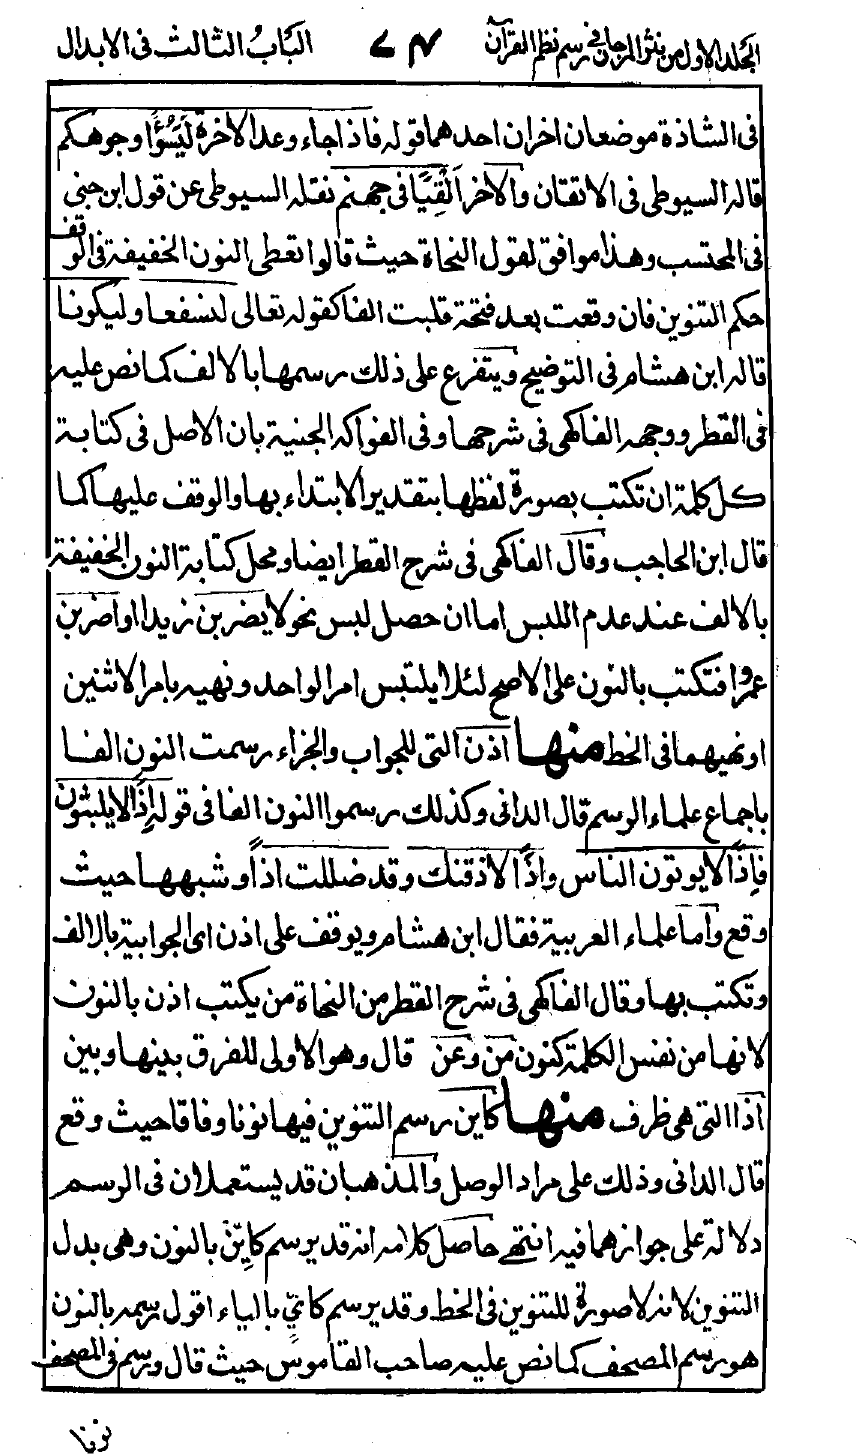 المجلد الاول من نثر المرجان في رسم نظم القرآن ٧٣ الباب الثالث فى الابدال
فى الشاذة موضعان اخران احدهما قوله فاذا جاء وعد الاخرة لَيَسُوْءًا وجوهكم
قاله السيوطى فى الاتقان والاخر اَلْقِيًا فى جهنم نقله السيوطى عن قول ابن جنى
فى المحتسب وهذا موافق لقول النحاة حيث قالوا تعطى النون الخفيفة فى الوقف
حكم التنوين فان وقعت بعد فتحة قلبت الفا كقوله تعالى لنسفعا وليكونا
قاله ابن هشام فى التوضيح ويتفرع على ذلك رسمها بالالف كما نص عليه
فى القطر ووجهه الفاكهى فى شرحها وفى الفواكه الجنية بان الاصل فى كتابة
كل كلمة ان تكتب بصورة لفظها بتقدير الابتداء بها والوقف عليها كما
قال ابن الحاجب وقال الفاكهى فى شرح القطر ايضا ومحل كتابة النون الخفيفة
بالالف عند عدم اللبس اما ان حصل لبس نحو لا يضربن زيدا او اضربن
عمروا فتكتب بالنون على الاصح لئلا يلتبس امر الواحد ونهيه بامر الاثنين
او نهيهما فى الخط منها اذن التى للجواب والجزاء رسمت النون الفا
باجماع علماء الرسم قال الدانى وكذلك رسموا النون الفا فى قوله اِذًا لا يلبثون
فاِذًا لا يوتون الناس واِذًا لاذقنك وقد ضللت اذاً وشبهها حيث
وقع واما علماء العربية فقال ابن هشام ويوقف على اذن اى الجوابية بالالف
وتكتب بها وقال الفاكهى فى شرح القطر من النحاة من يكتب اذن بالنون
لانها من نفس الكلمة كنون من وعن قال وهو الاولى للفرق بينها وبين
اذا التى هى ظرف منها كاين رسم التنوين فيها نونا وفاقا حيث وقع
قال الدانى وذلك على مراد الوصل والمذهبان قد يستعملان فى الرسم
دلالة على جوازهما فيه انتهى حاصل كلامه انه قد يرسم كاَيِّنْ بالنون وهى بدل
التنوين لانه لا صورة للتنوين فى الخط وقد يرسم كاَيٍّ بالياء اقول رسمه بالنون
هو رسم المصحف كما نص عليه صاحب القاموس حيث قال ورسم فى المصحف
نونا